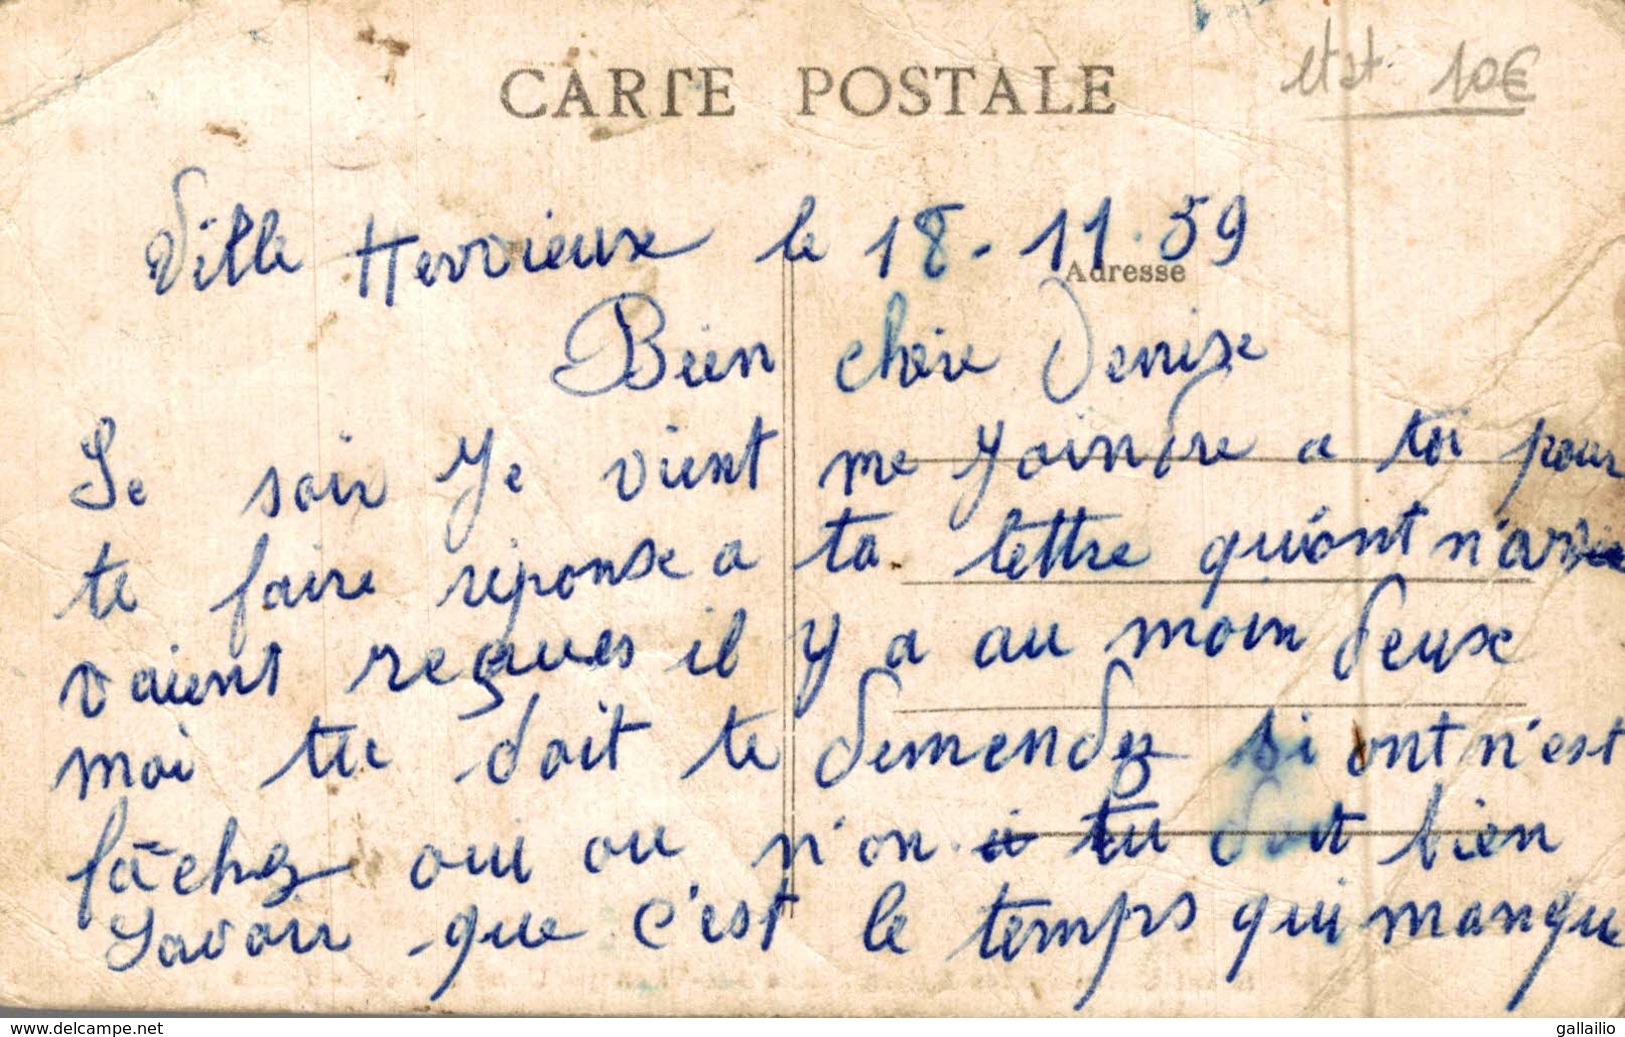 CARTE POSTALE
etat 10€
Ville Hervieux le 18-11.59
Adresse
Bien chère Denise
Se soir Je vient me Joindre a toi pour
te faire réponse a ta lettre qu'ont n'avi
vaient reçues il y a au moin deux
moi tu doit te demendez si ont n'est
fâchez oui ou n'on tu doit bien
savoir que c'est le temps qui manque
www.delcampe.net
gallailio